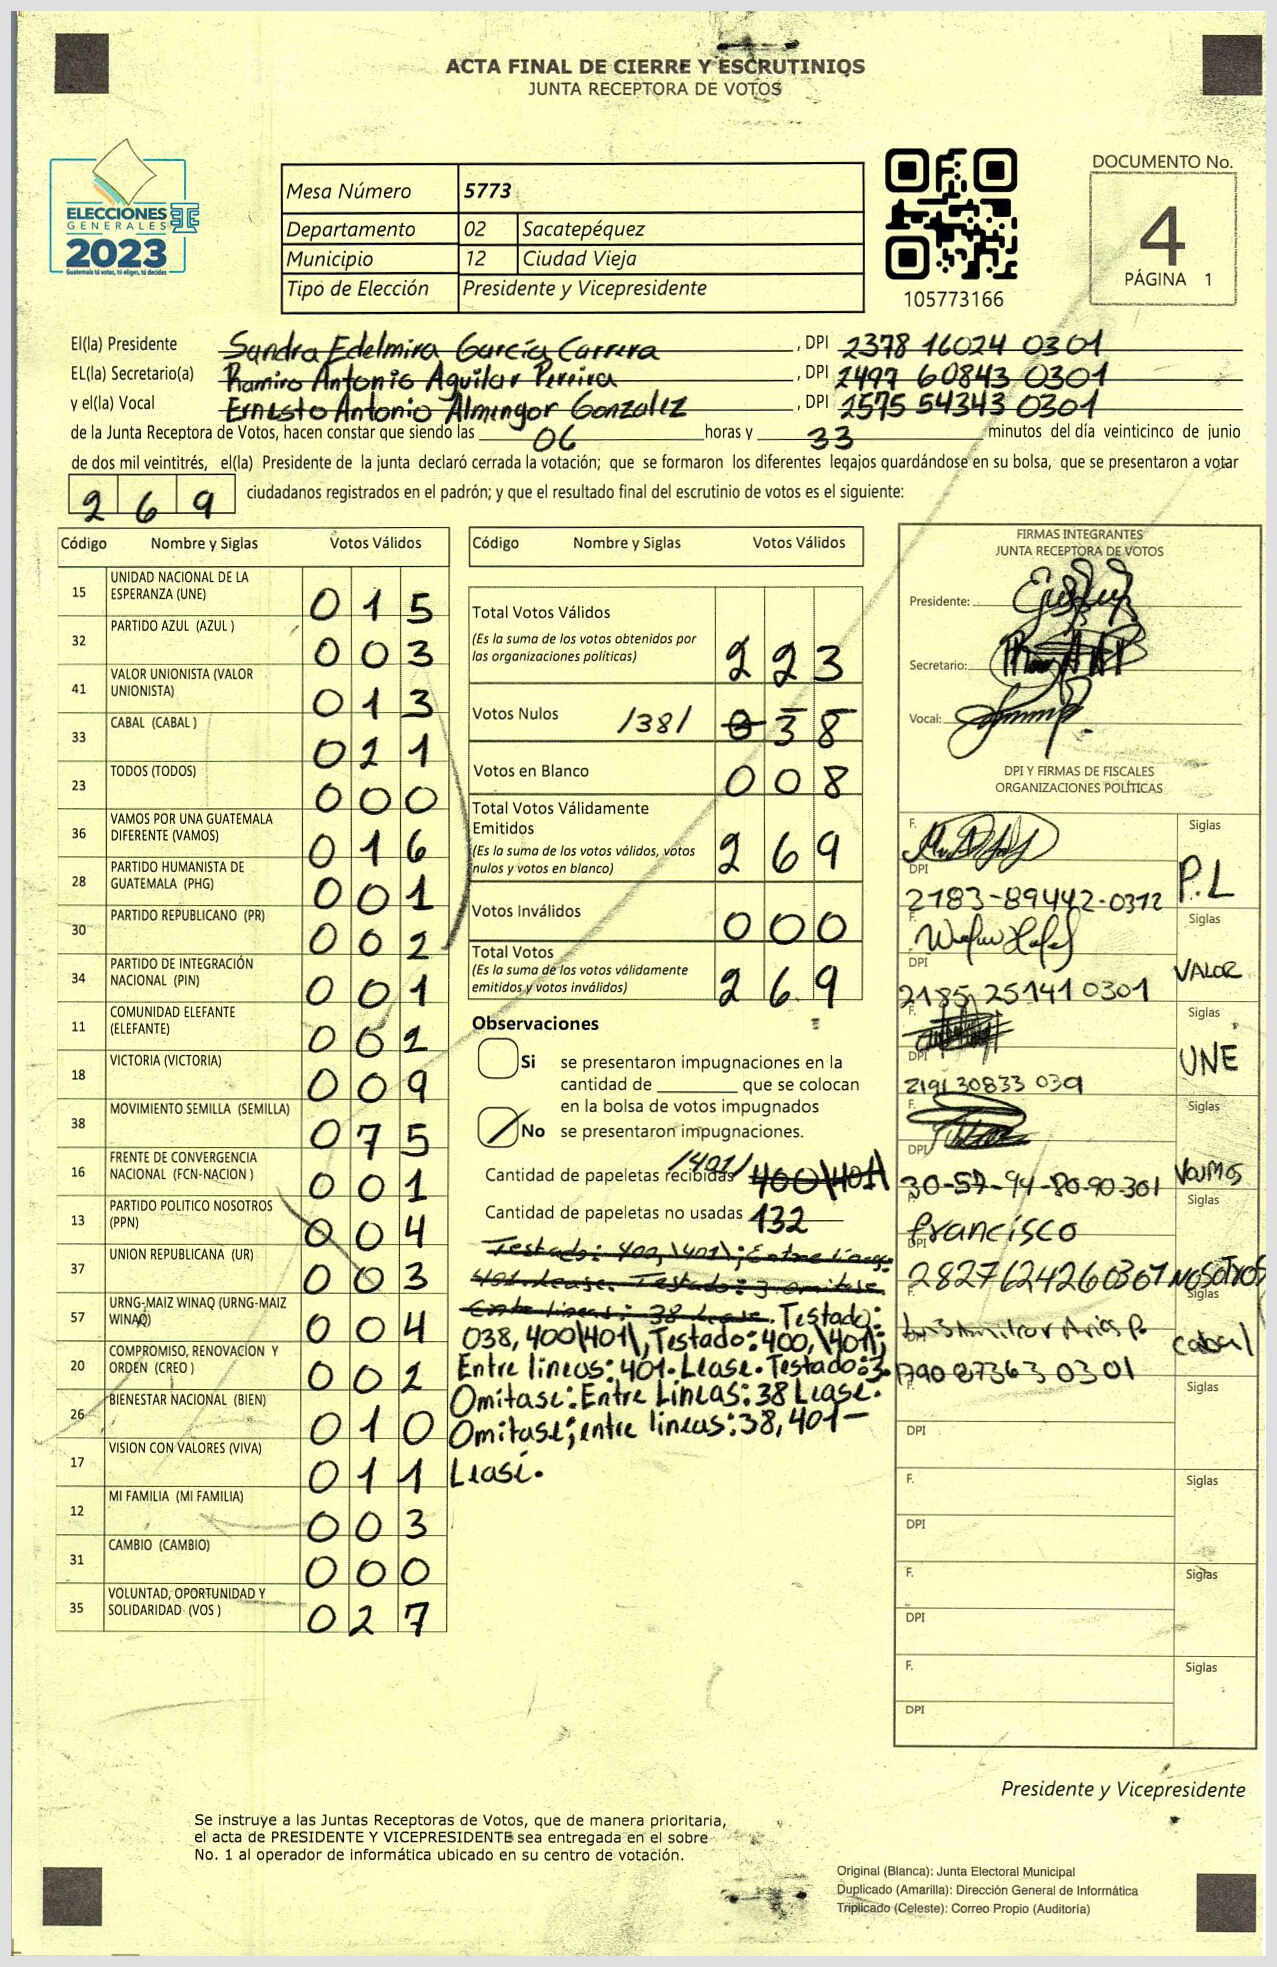 ACTA FINAL DE CIERRE Y ESCRUTINIOS
JUNTA RECEPTORA DE VOTOS
ELECCIONES
GENERALES
2023
Guatemala tú votas, tú eliges, tú decides
Mesa Número 5773
Departamento 02 Sacatepéquez
Municipio 12 Ciudad Vieja
Tipo de Elección Presidente y Vicepresidente
105773166
DOCUMENTO No.
4
PÁGINA 1
El(la) Presidente Sandra Edelmira García Carrera, DPI 2378 16024 0301
EL(la) Secretario(a) Ramiro Antonio Aguilar Pereira, DPI 2497 60843 0301
y el(la) Vocal Ernesto Antonio Almengor Gonzalez, DPI 2575 54343 0301
de la Junta Receptora de Votos, hacen constar que siendo las 06 horas y 33 minutos del día veinticinco de junio
de dos mil veintitrés, el(la) Presidente de la junta declaró cerrada la votación; que se formaron los diferentes legajos quardándose en su bolsa, que se presentaron a votar
269 ciudadanos registrados en el padrón; y que el resultado final del escrutinio de votos es el siguiente:
Código Nombre y Siglas Votos Válidos
15 UNIDAD NACIONAL DE LA ESPERANZA (UNE) 015
32 PARTIDO AZUL (AZUL ) 003
41 VALOR UNIONISTA (VALOR UNIONISTA) 013
33 CABAL (CABAL ) 021
23 TODOS (TODOS) 000
36 VAMOS POR UNA GUATEMALA DIFERENTE (VAMOS) 016
28 PARTIDO HUMANISTA DE GUATEMALA (PHG) 001
30 PARTIDO REPUBLICANO (PR) 002
34 PARTIDO DE INTEGRACIÓN NACIONAL (PIN) 001
11 COMUNIDAD ELEFANTE (ELEFANTE) 002
18 VICTORIA (VICTORIA) 009
38 MOVIMIENTO SEMILLA (SEMILLA) 075
16 FRENTE DE CONVERGENCIA NACIONAL (FCN-NACION ) 001
13 PARTIDO POLITICO NOSOTROS (PPN) 004
37 UNION REPUBLICANA (UR) 003
57 URNG-MAIZ WINAQ (URNG-MAIZ WINAQ) 004
20 COMPROMISO, RENOVACION Y ORDEN (CREO ) 002
26 BIENESTAR NACIONAL (BIEN) 010
17 VISION CON VALORES (VIVA) 011
12 MI FAMILIA (MI FAMILIA) 003
31 CAMBIO (CAMBIO) 000
35 VOLUNTAD, OPORTUNIDAD Y SOLIDARIDAD (VOS ) 027
Código Nombre y Siglas Votos Válidos
Total Votos Válidos
(Es la suma de los votos obtenidos por
las organizaciones políticas) 223
Votos Nulos /38/ 038
Votos en Blanco 008
Total Votos Válidamente
Emitidos
(Es la suma de los votos válidos, votos
nulos y votos en blanco) 269
Votos Inválidos 000
Total Votos
(Es la suma de los votos válidamente
emitidos y votos inválidos) 269
Observaciones
Si se presentaron impugnaciones en la
cantidad de ________ que se colocan
en la bolsa de votos impugnados
No se presentaron impugnaciones.
Cantidad de papeletas recibidas /401/ 400\401\
Cantidad de papeletas no usadas 132
Testado: 400,\401\; Entre lineas
401. Lease. Testado: 3. omitase.
Entre lineas: 38 Lease. Testado:
038, 400\401\, Testado: 400, \401\;
Entre lineas: 401. Lease. Testado: 3.
Omitase: Entre Líneas: 38 Lease.
Omitase; entre lineas: 38, 401 —
Lease.
FIRMAS INTEGRANTES
JUNTA RECEPTORA DE VOTOS
Presidente:
Secretario:
Vocal:
DPI Y FIRMAS DE FISCALES
ORGANIZACIONES POLÍTICAS
F. Siglas
DPI 2183-89442-0312 P.L
F. Siglas
DPI 2185 25141 0301 VALOR
F. Siglas
DPI UNE
F. Siglas
DPI 30-57-94-80-90-301 Vamos
F. francisco Siglas
DPI 2827624260301 NOSOTROS
Siglas
1790 87363 0301 cabal
F. Siglas
DPI
F. Siglas
DPI
F. Siglas
DPI
F. Siglas
DPI
Presidente y Vicepresidente
Se instruye a las Juntas Receptoras de Votos, que de manera prioritaria,
el acta de PRESIDENTE Y VICEPRESIDENTE sea entregada en el sobre
No. 1 al operador de informática ubicado en su centro de votación.
Original (Blanca): Junta Electoral Municipal
Duplicado (Amarilla): Dirección General de Informática
Triplicado (Celeste): Correo Propio (Auditoría)